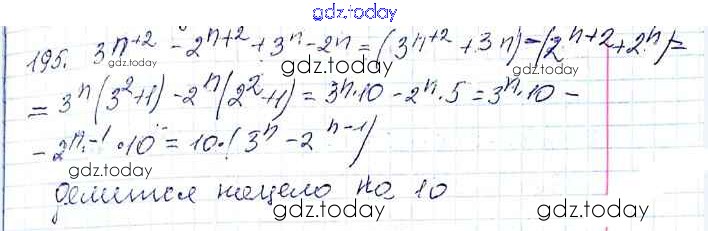 gdz.today
195. 3^{n+2} - 2^{n+2} + 3^n - 2^n = (3^{n+2} + 3^n) - (2^{n+2} + 2^n) =
gdz.today gdz.today
= 3^n (3^2+1) - 2^n (2^2+1) = 3^n·10 - 2^n·5 = 3^n·10 -
gdz.today gdz.today
- 2^{n-1}·10 = 10·(3^n - 2^{n-1})
gdz.today
делится нацело на 10
gdz.today gdz.today